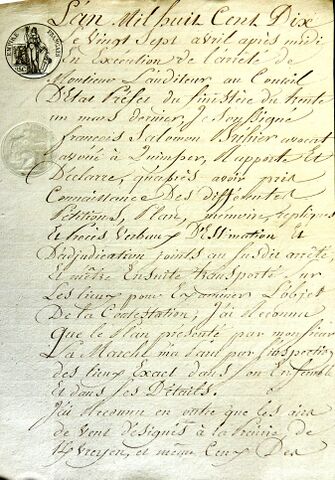 L'an Mil huit Cent Dix
Le vingt Sept avril après midi
En Execution de l'arrêté de
Monsieur L'auditeur au Conseil
D'Etat Préfet du finistère du trente
un mars dernier, Je Soussigné
françois Salomon Bréhier avocat
avoué à Quimper, Rapporte et
Déclare, qu'après avoir pris
Connaissance Des différentes
Pétitions, Plan, mémoire, repliques
Et Procès verbaux D'Estimation Et
D'adjudication joints au Susdit arrêté,
et m'être Ensuite transporté sur
Les lieux pour Examiner L'objet
De la Contestation; J'ai Reconnu
Que le Plan présenté par monsieur
La Marche m'a paru par l'inspection
des lieux Exact dans son Ensemble
Et dans ses Détails.
J'ai Reconnu en outre que les airs
de vent désignés à la
de et même Ceux Des
EMPIRE FRANÇAIS